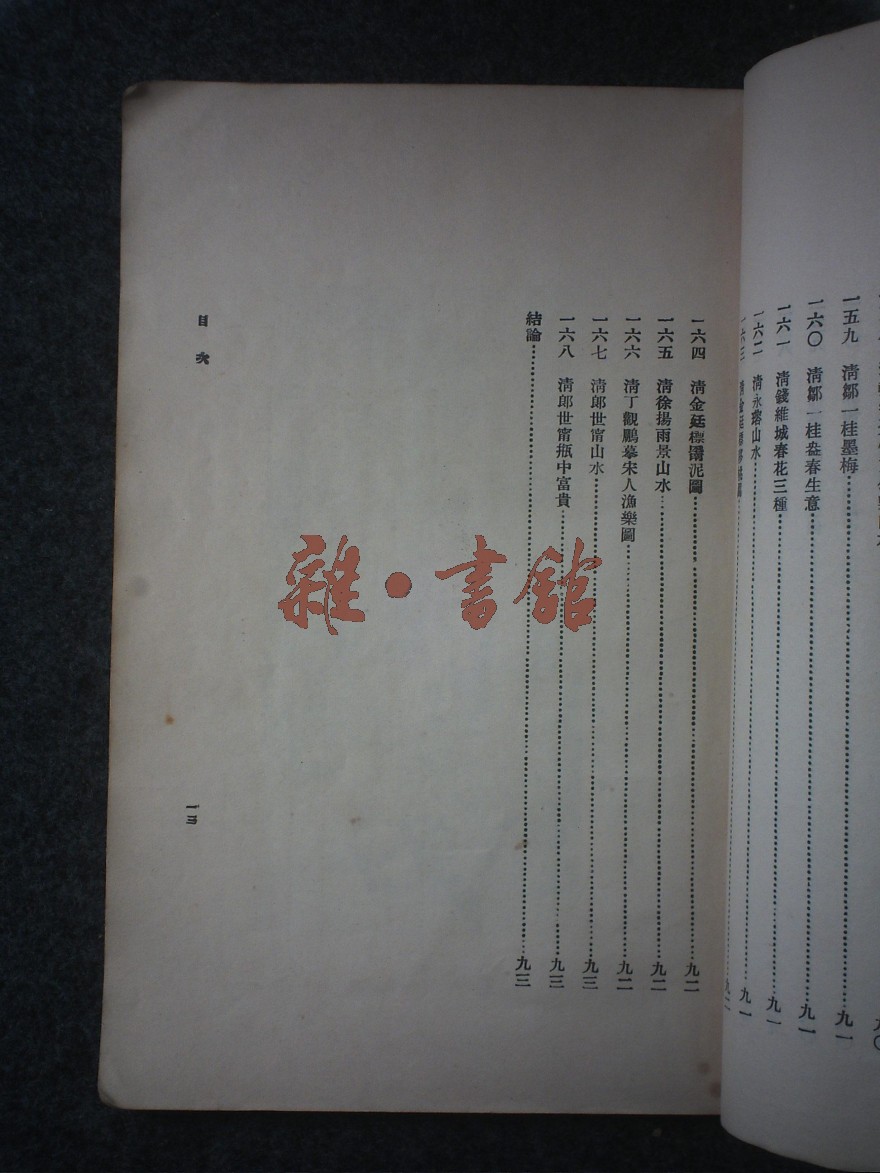 一五九 清鄒一桂墨梅 九一
一六〇 清鄒一桂盎春生意 九一
一六一 清錢維城春花三種 九一
一六二 清永瑢山水 九一
一六三 清金廷標
一六四 清金廷標罱泥圖 九二
一六五 清徐揚雨景山水 九二
一六六 清丁觀鵬摹宋人漁樂圖 九二
一六七 清郎世甯山水 九三
一六八 清郎世甯瓶中富貴 九三
結論 九三
目次
一三
雜·書館